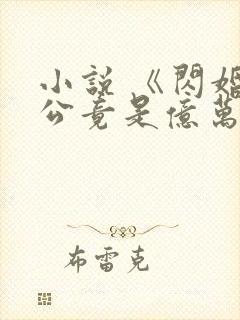 小說《閃婚
公竟是億萬
布雷克